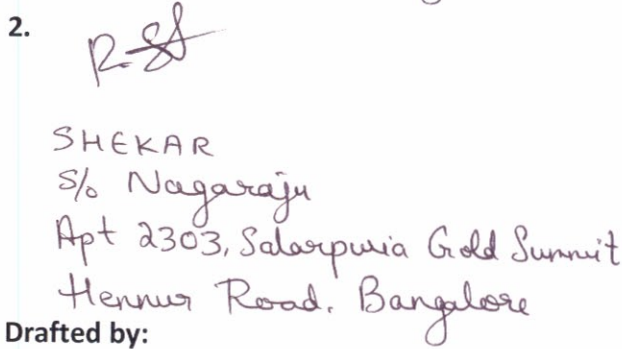 2.
SHEKAR
S/o Nagaraju
Apt 2303, Salarpuria Gold Summit
Hennur Road. Bangalore
Drafted by: